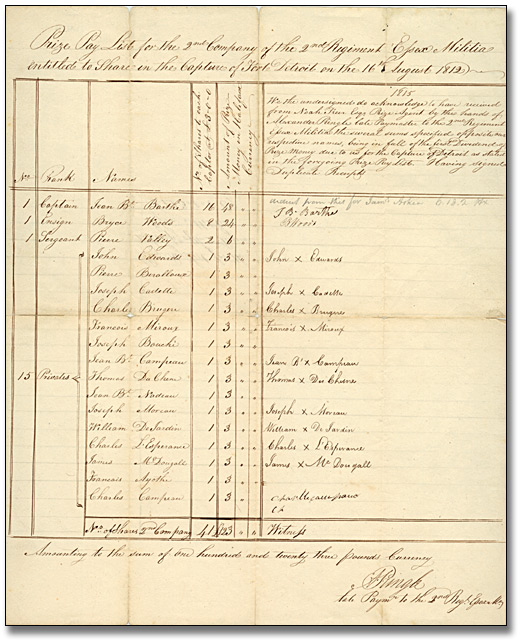 Prize Pay List for the 2nd Company of the 2nd Regiment Essex Militia
entitled to Share in the Capture of Fort Detroit on the 16th August 1812
No. Rank Names
No. of Shares each
Amount of Prize Money in Halifax Currency
1815
We the undersigned do acknowledge to have received
from Noah Freer Esqr Prize Agent by the hands of
Alexander Pringle late Paymaster to the 2nd Regiment
Essex Militia the several sums specified opposite our
respective names, being in full of the first Dividend of
Prize Money due to us for the Capture of Detroit as stated
in the foregoing Prize Pay List. Having signed
Duplicate Receipts
1 Captain Jean Bt. Barthe 16 48 " " J. B. Barthe
1 Ensign Bryon Woods 8 24 " " B Woods
1 Sergeant Pierre 2 6 " "
John Edwards 1 3 " " John x Edwards
Pierre 1 3 " "
Joseph 1 3 " " Joseph x
Charles 1 3 " " Charles x
Francois Meroux 1 3 " " Francois x Meroux
Joseph 1 3 " "
Jean Bt. Campeau 1 3 " " Jean Bt x Campeau
15 Privates Thomas Du Chene 1 3 " " Thomas x Du Chesne
Jean Bt. Nadeau 1 3 " "
Joseph Moreau 1 3 " " Joseph x Moreau
William De Jardin 1 3 " " William x De Jardin
Charles L'Esperance 1 3 " " Charles x L'Esperance
James McDougall 1 3 " " James x McDougall
Francois 1 3 " "
Charles Campeau 1 3 " "
No. of Shares 2nd Company 41 123 " " Witness
Amounting to the sum of one hundred and twenty three pounds Currency
late Paymr to the 2nd Regt. Essex Ma